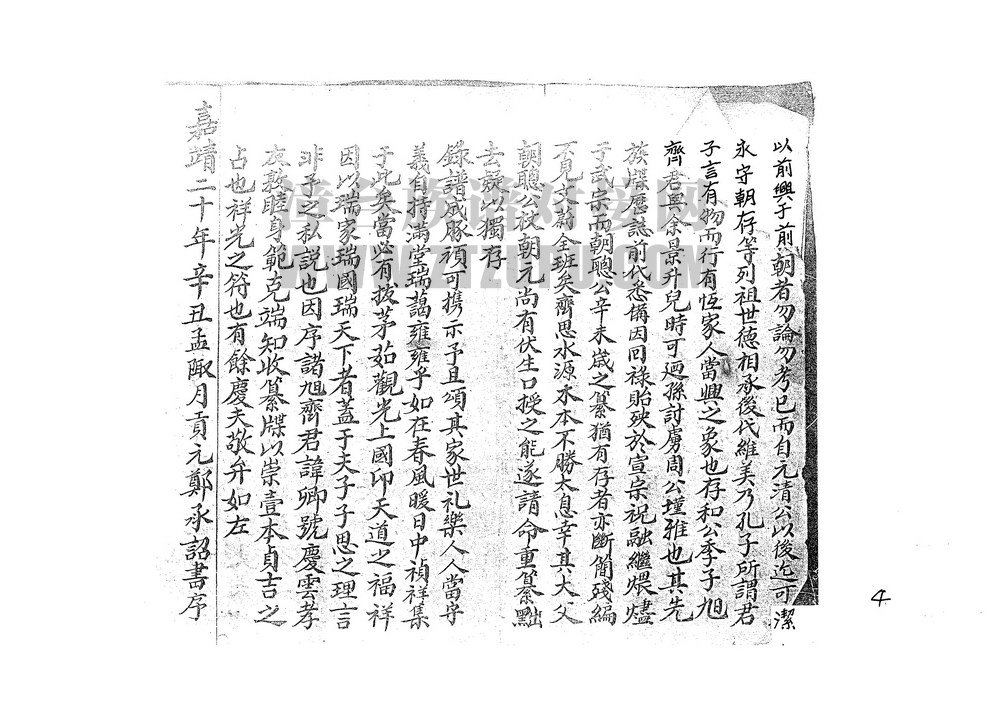 以前興于前朝者勿論勿考已而自元清公以後迄可潔
永守朝存等列祖世德相承後代維美乃孔子所謂君
子言有物而行有恆家人當興之象也存和公季子旭
齊君與余景升兒時可廼孫討虜周公瑾雅也其先
族牒歷誌前代悉備因回祿貽殃於宣宗祝融繼煨燼
于武宗而朝聰公辛未歲之纂猶有存者亦斷簡殘編
不見文蔚全班矣齊思水源木本不勝太息幸其大父
朝聰公杖朝元尚有伏生口授之能遂請命重纂點
去疑以獨存
錄譜成豚頑可携示予且頌其家世礼樂人人當字
義自持滿堂瑞藹雍雍乎如在春風暖日中禎祥集
于此矣當必有拔茅茹觀光上國印天道之福祥
因以瑞家瑞國瑞天下者蓋于夫子子思之理言
非予之私説也因序諸旭齊君諱卿號慶雲孝
友敦睦身範克端知收纂牒以崇壹本貞吉之
占也祥光之符也有餘慶夫敬弁如左
嘉靖二十年辛丑孟陬月貢元鄭承詔書序
4
漳台族谱对接网
WWW.ZTZUPU.COM